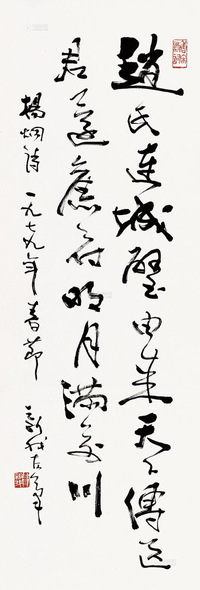 趙氏連城璧由来天下傳送
君還舊府明月滿前川
楊炯詩 一九七九年春節
散耳左筆